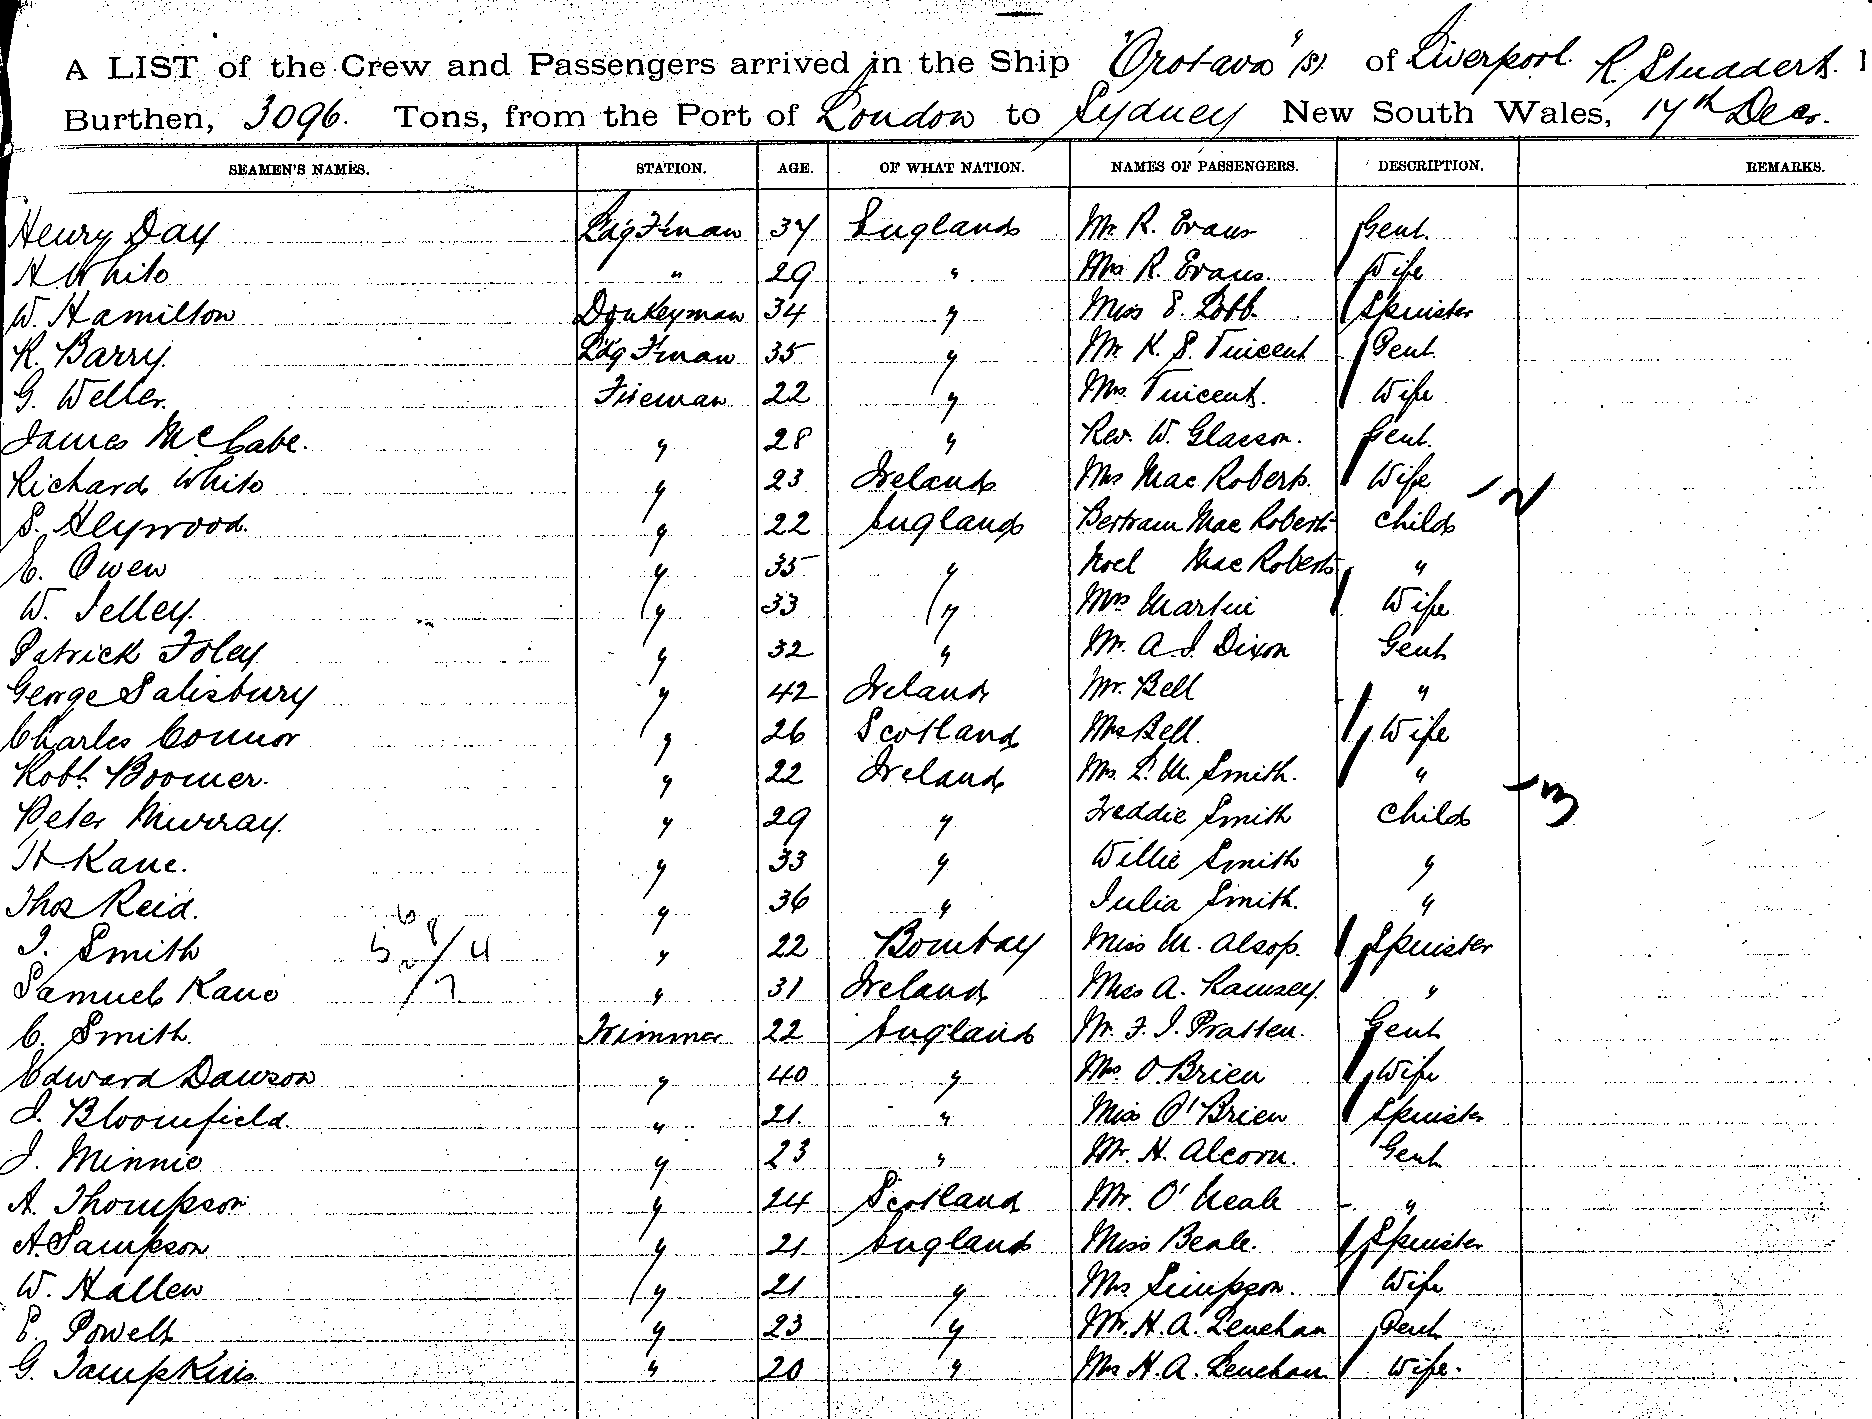 A LIST of the Crew and Passengers arrived in the Ship "Orotava" (s) of Liverpool. R. Studdert.
Burthen, 3096. Tons, from the Port of London to Sydney New South Wales, 17th Decr.
SEAMEN'S NAMES. STATION. AGE. OF WHAT NATION. NAMES OF PASSENGERS. DESCRIPTION. REMARKS.
Henry Day Ldg F'man 37 England Mr. R. Evans Gent.
H White " 29 " Mrs R. Evans. Wife
W. Hamilton Donkeyman 34 " Miss E. Lobb. Spinster
R. Barry. Ldg F'man 35 " Mr. K. S. Vincent Gent.
G. Weller. Fireman 22 " Mrs. Vincent. Wife
James McCabe. " 28 " Rev. W. Glasson. Gent.
Richard White " 23 Ireland Mrs Mac Roberts. Wife 2
S. Heywood. " 22 England Bertram Mac Roberts Child
E. Owen " 35 " Noel Mac Roberts "
W. Jelley. " 33 " Mrs Martin Wife
Patrick Foley " 32 " Mr. A J. Dixon Gent
George Salisbury " 42 Ireland Mr. Bell "
Charles Connor " 26 Scotland Mrs Bell. Wife
Robt. Boomer. " 22 Ireland Mrs. L. M. Smith. "
Peter Murray. " 29 " Freddie Smith Child 3
H Kane. " 33 " Willie Smith "
Thos Reid. " 36 " Julia Smith. "
J. Smith " 22 Bombay Miss M. Alsop. Spinster
Samuel Kane " 31 Ireland Miss A. Ramsey. "
C. Smith. Trimmer 22 England Mr. F. J. Pratten. Gent
Edward Dawson " 40 " Mrs. O'Brien Wife
J. Bloomfield. " 21. " Miss O'Brien Spinster
J. Minnie " 23 " Mr. H. Alcorn. Gent
A. Thompson " 24 Scotland Mr. O'Neale "
A. Sampson " 21 England Miss Beale. Spinster
W. Hallen " 21 " Mrs Simpson. Wife
E. Powell " 23 " Mr. H. A. Lenehan Gent
G. Tampkins " 20 " Mrs H. A. Lenehan Wife.